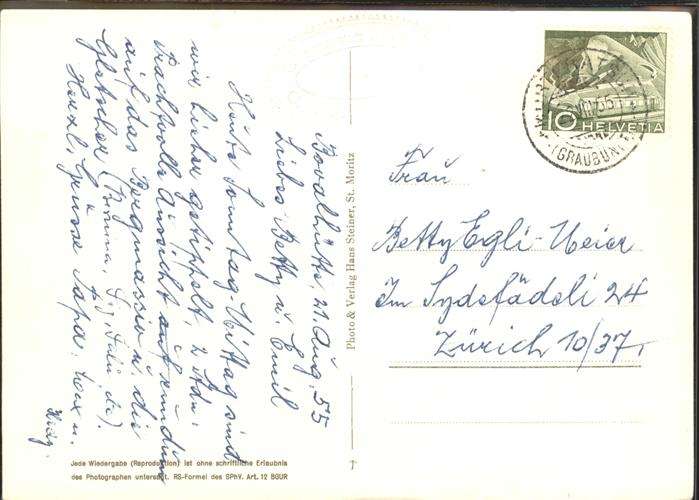 Bovalhütte, 21. Aug. 55
Liebes Betty u. Emil
Heute Sonntag-Mittag sind
wir hieher getippelt, 2 Stdn.
Prachtvolle Aussicht
auf das Berninamassiv u. die
Gletscher
Herzl. Grüsse
Photo & Verlag Hans Steiner, St. Moritz
Jede Wiedergabe (Reproduktion) ist ohne schriftliche Erlaubnis
des Photographen untersagt. RS-Formel des SPhV. Art. 12 BGUR
10 HELVETIA
(GRAUBÜN
Frau
Betty Egli-Meier
Im Sydefädeli 24
Zürich 10/37,